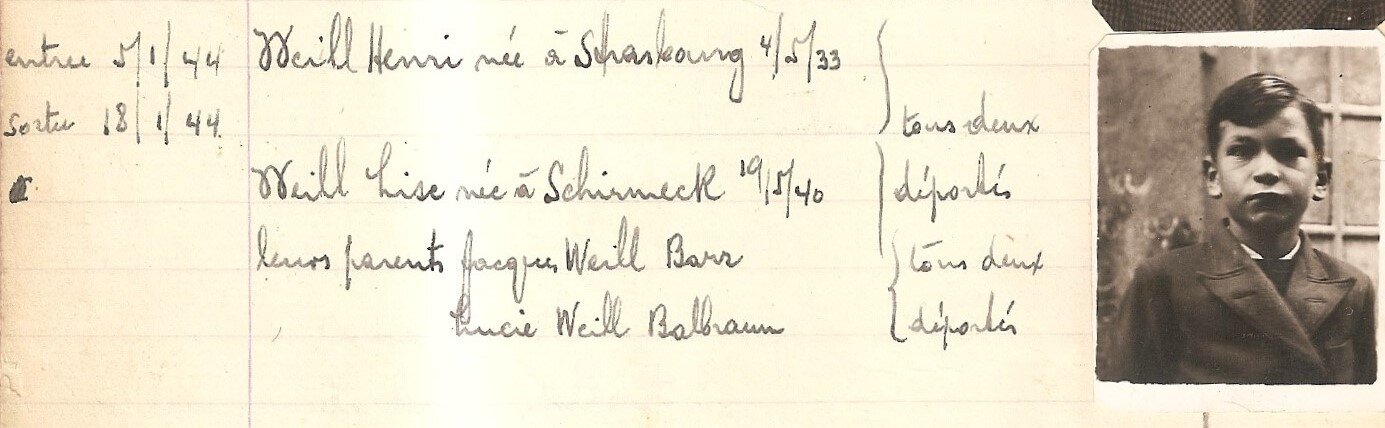 entrée 5/1/44 Weill Henri née à Strasbourg 4/5/33
sortie 18/1/44 tous deux
Weill Lise née à Schirmeck 19/5/40 déportés
leurs parents Jacques Weill Barr tous deux
Lucie Weill Balbraun déportés